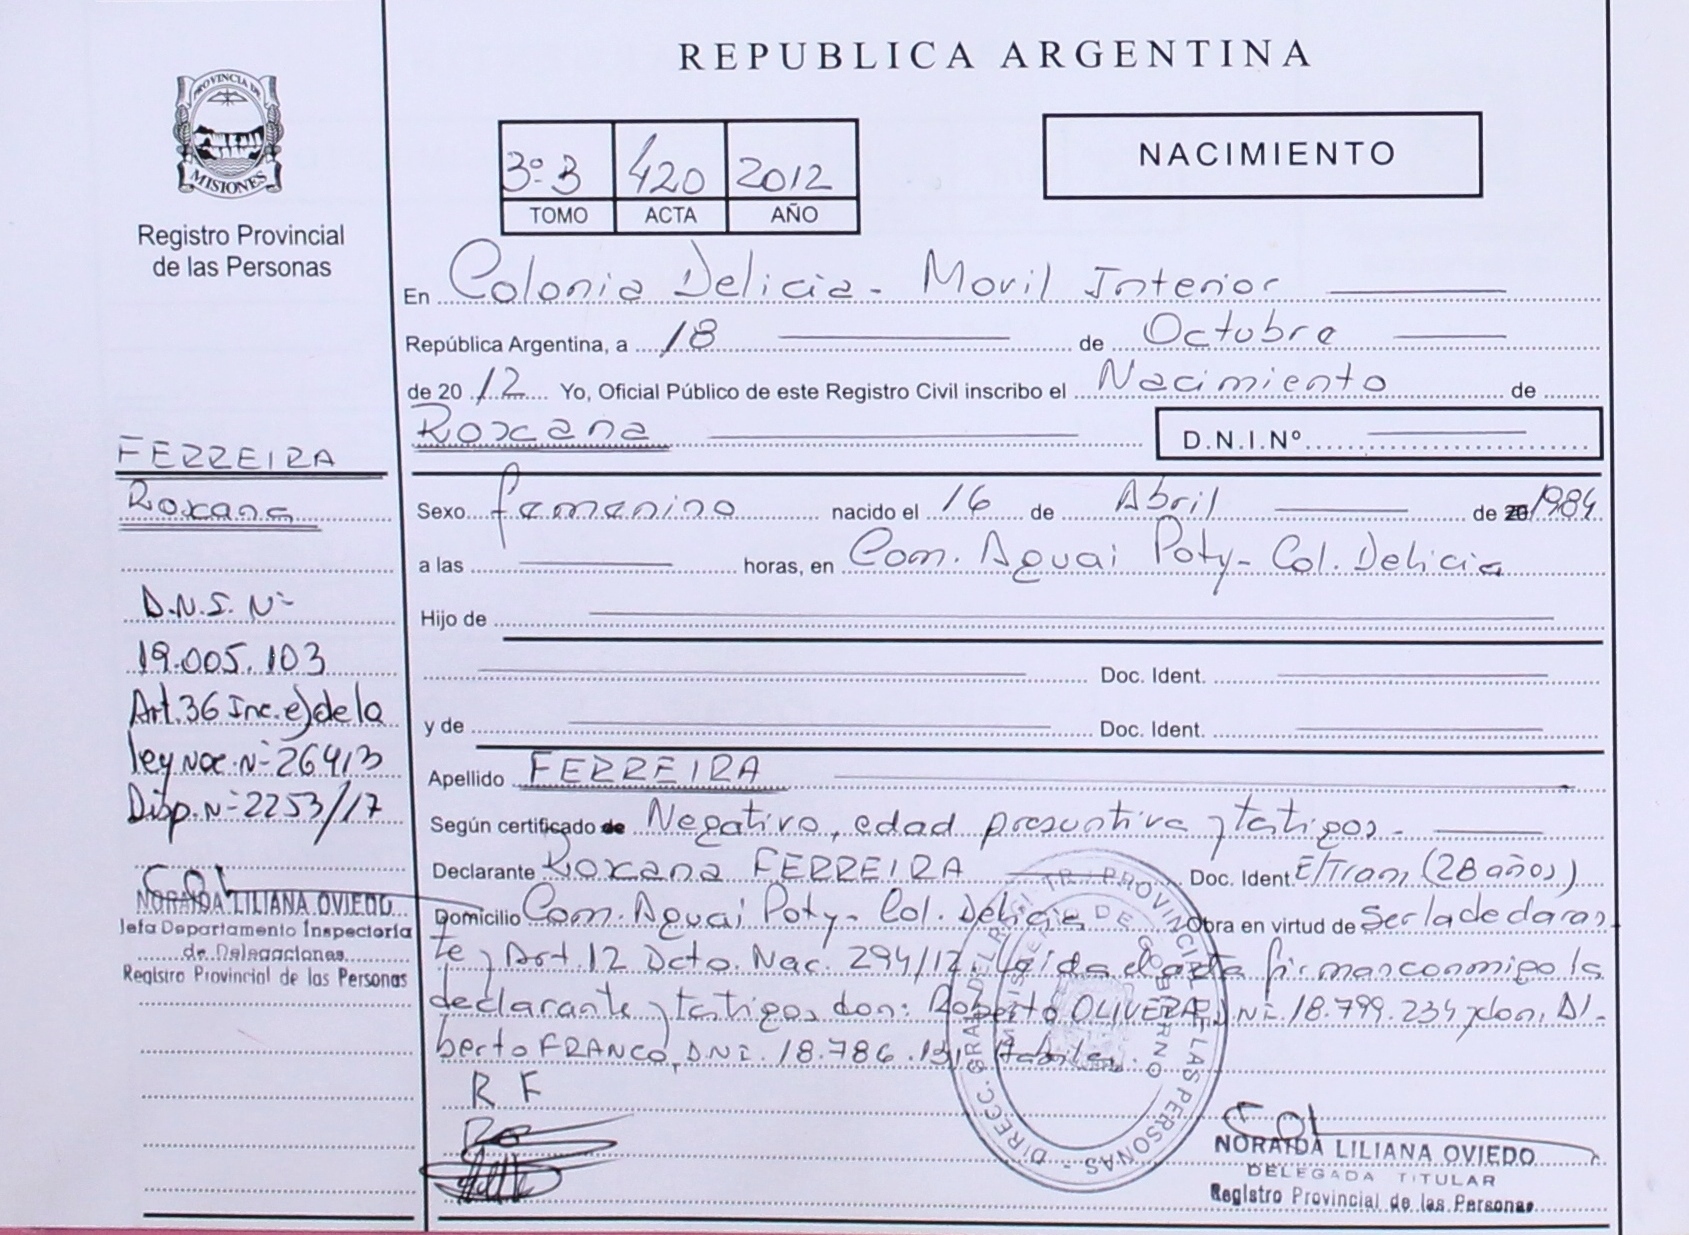 REPUBLICA ARGENTINA
PROVINCIA DE
MISIONES
Registro Provincial
de las Personas
3º B 420 2012
TOMO ACTA AÑO
NACIMIENTO
En Colonia Delicia - Movil Interior
República Argentina, a 18 de Octubre
de 2012 Yo, Oficial Público de este Registro Civil inscribo el Nacimiento de
Roxana D.N.I.Nº
FERREIRA
Roxana
D.N.I. Nº
19.005.103
Art.36 Inc.e) de la
ley Nac. Nº 26413
Disp. Nº 2253/17
NORAIDA LILIANA OVIEDO
Jefa Departamento Inspectoría
de Delegaciones
Registro Provincial de las Personas
Sexo femenino nacido el 16 de Abril de 1984
a las horas, en Com. Aguai Poty - Col. Delicia
Hijo de
Doc. Ident.
y de Doc. Ident.
Apellido FERREIRA
Según certificado de Negativo, edad presuntiva y testigos.
Declarante Roxana FERREIRA Doc. Ident. E/Tram (28 años)
Domicilio Com. Aguai Poty - Col. Delicia Obra en virtud de Ser la declaran
te y Art. 12 Dcto. Nac. 294/12. Leída el acta firman conmigo la
declarante y testigos don: Roberto OLIVERA, DNI. 18.799.234 y don, Al-
berto FRANCO, DNI. 18.786.131
R F
DIRECC. GRAL. DEL REGISTRO PROVINCIAL DE LAS PERSONAS
MINISTERIO DE GOBIERNO
NORAIDA LILIANA OVIEDO
DELEGADA TITULAR
Registro Provincial de las Personas